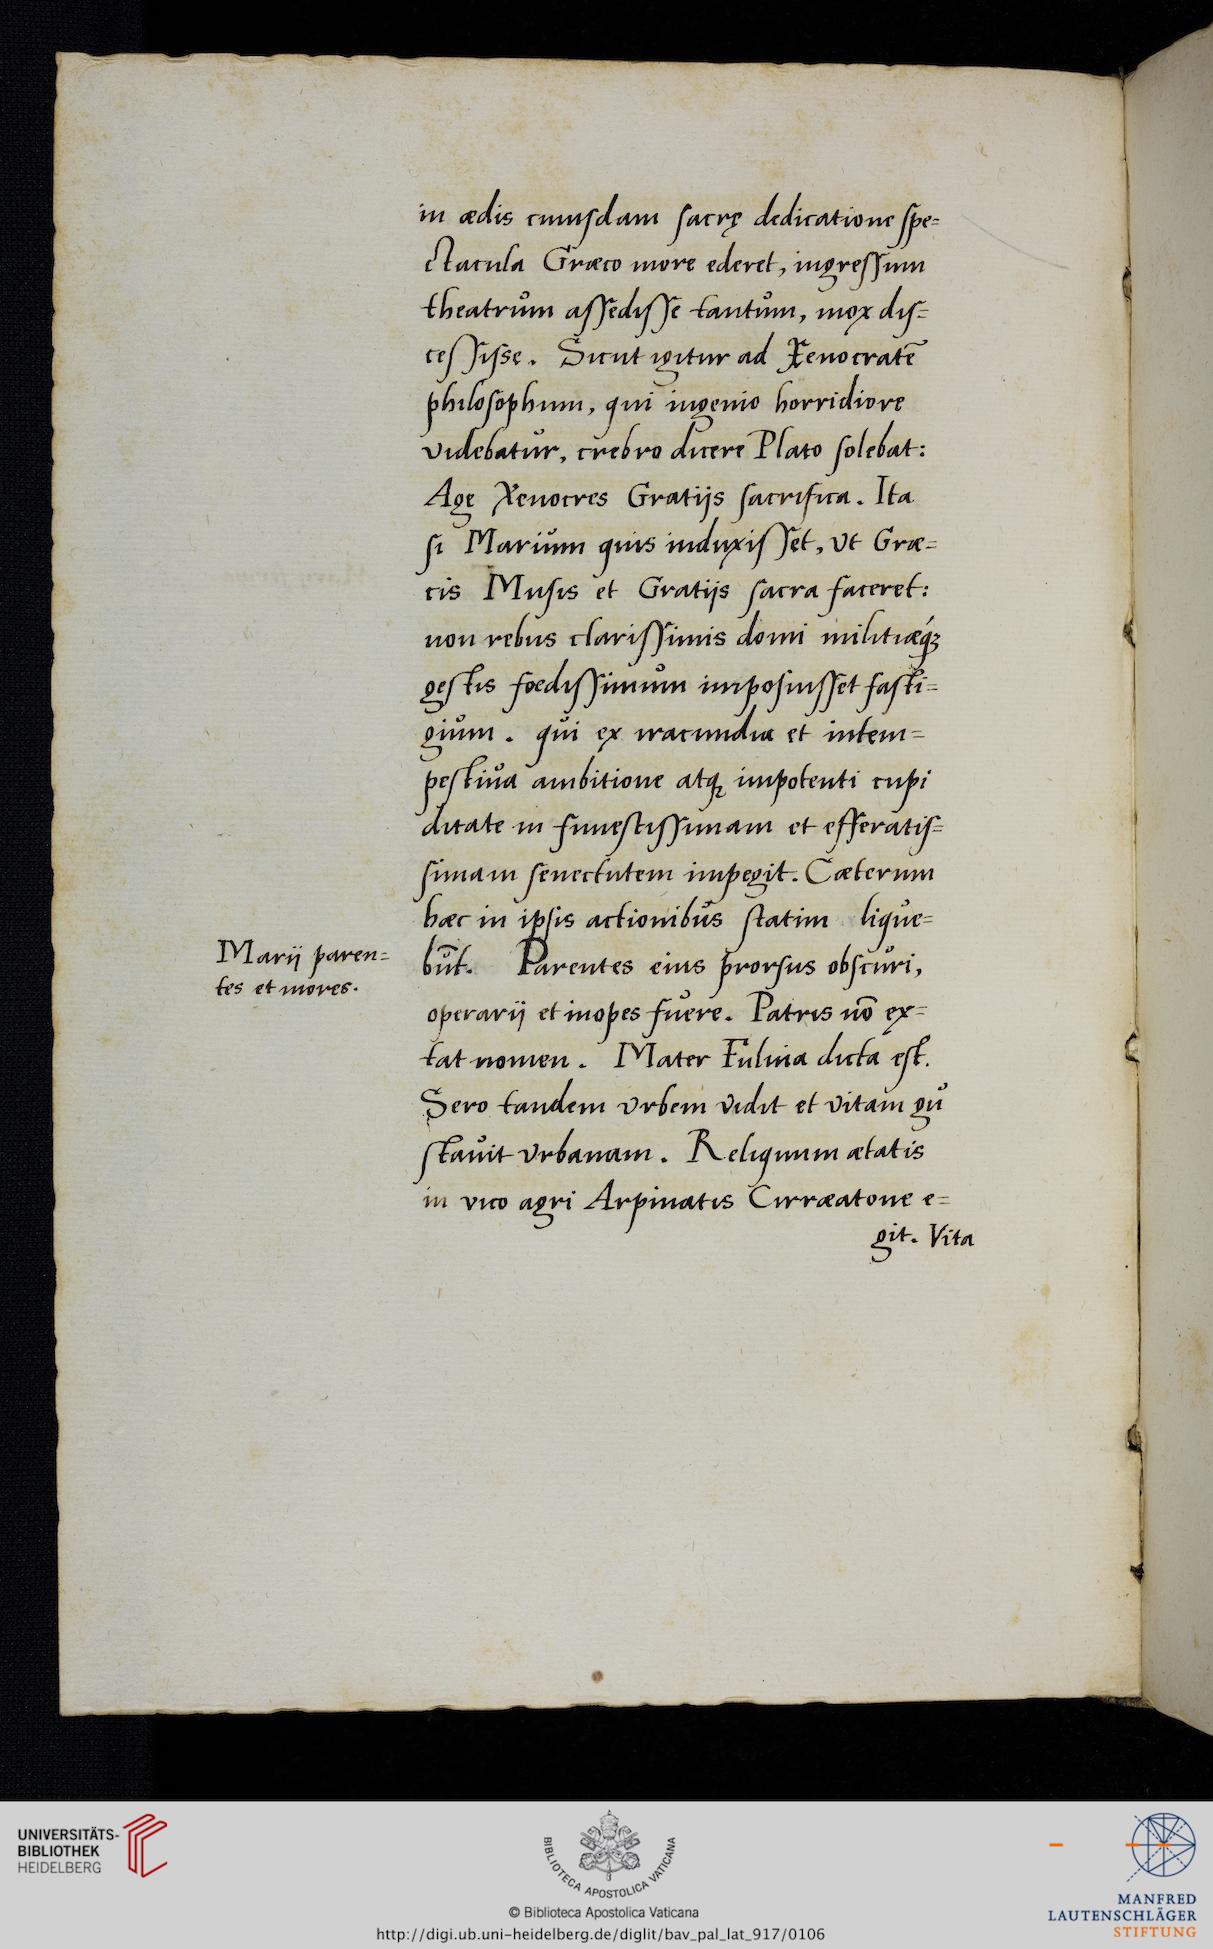 in ædis cuiusdam sacrę dedicatione spe=
ctacula Græco more ederet, ingressum
theatrum assedisse tantum, mox dis=
cessisse. Sicut igitur ad Xenocratē
philosophum, qui ingenio horridiore
videbatur, crebro dicere Plato solebat:
Age Xenocres Gratijs sacrifica. Ita
si Marium quis induxisset, ut Græ=
cis Musis et Gratijs sacra faceret:
non rebus clarissimis domi militiæq́ꝫ
gestis foedissimum imposuisset fasti=
gium. qui ex iracundia et intem=
pestiva ambitione atqꝫ impotenti cupi
ditate in funestissimam et efferatis=
simam senectutem impegit. Cæterum
hæc in ipsis actionibus statim lique=
Marij paren=
tes et mores.
būt. Parentes eius prorsus obscuri,
operarij et inopes fuere. Patris nō ex=
tat nomen. Mater Fulvia dicta est.
Sero tandem urbem vidit et vitam gu
stavit urbanam. Reliquum ætatis
in vico agri Arpinatis Cirræatone e=
git. Vita
UNIVERSITÄTS-
BIBLIOTHEK
HEIDELBERG
BIBLIOTECA APOSTOLICA VATICANA
© Biblioteca Apostolica Vaticana
http://digi.ub.uni-heidelberg.de/diglit/bav_pal_lat_917/0106
MANFRED
LAUTENSCHLÄGER
STIFTUNG